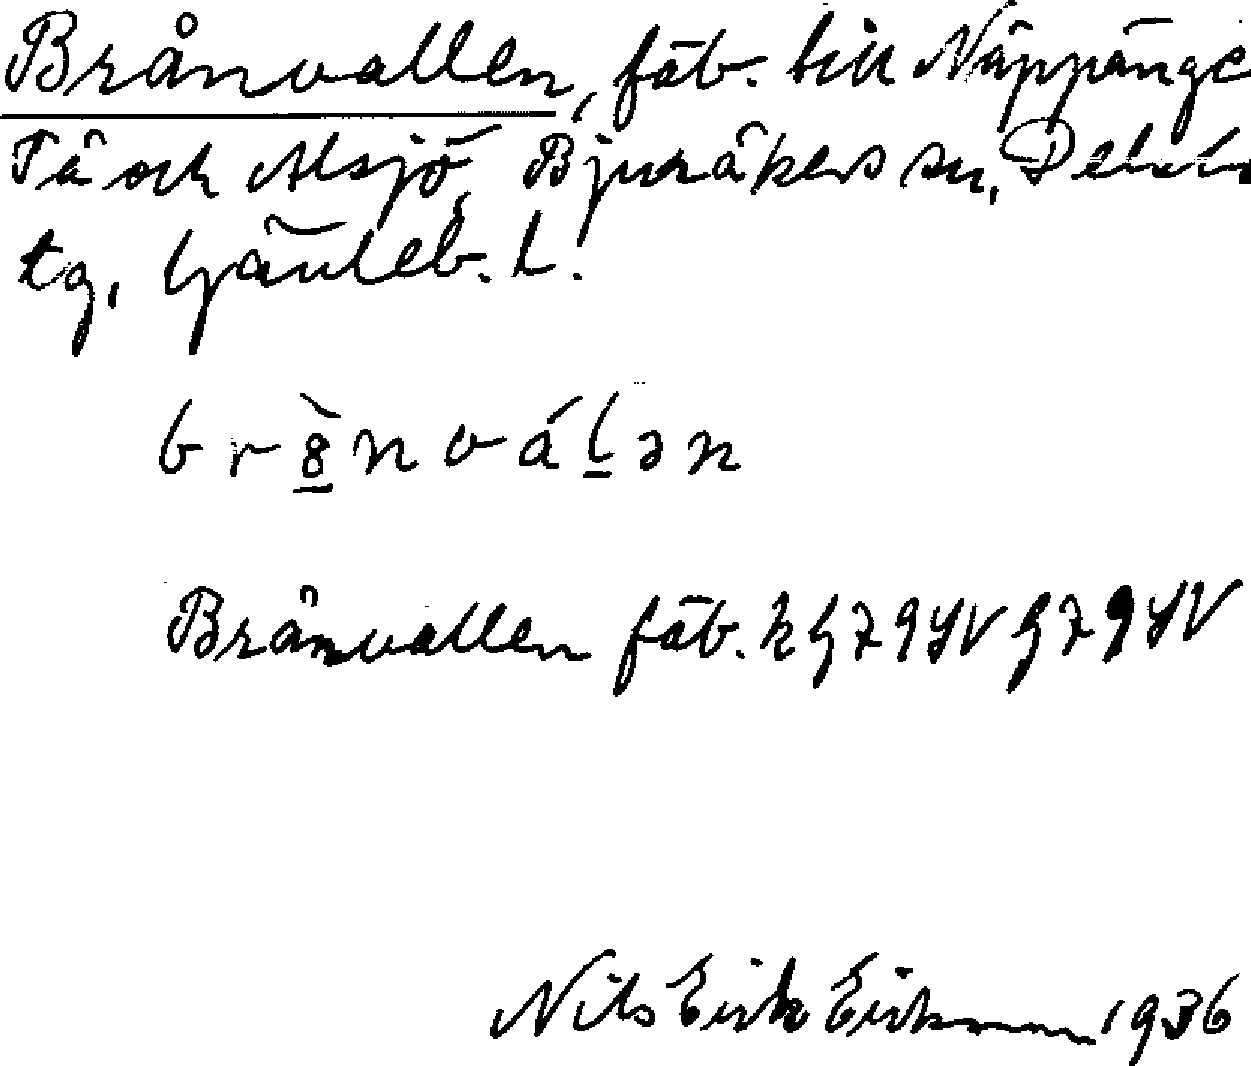 Brånvallen, fäb. till Näppänge
Tå och Alsjö, Bjuråkers sn, Delsbo
tg, Gävleb. L.
brånválən
Brånvallen fäb. k G79SV G79SV
Nils Erik Eriksson 1936